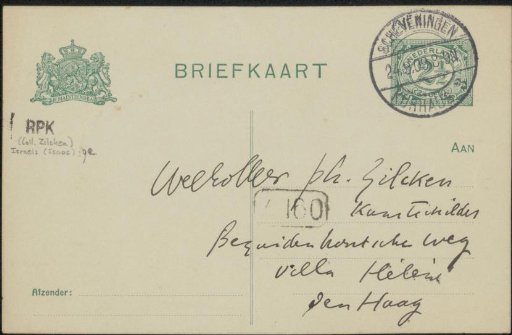 BRIEFKAART
SCHEVENINGEN
KURHAUS
NEDERLAND
2½
RPK
(Coll. Zilcken)
Israels (Isaac)
AAN
Ph. Zilcken
100
Kunstschilder
Bezuidenhoutsche weg
Villa Hélène
Den Haag
Afzender: